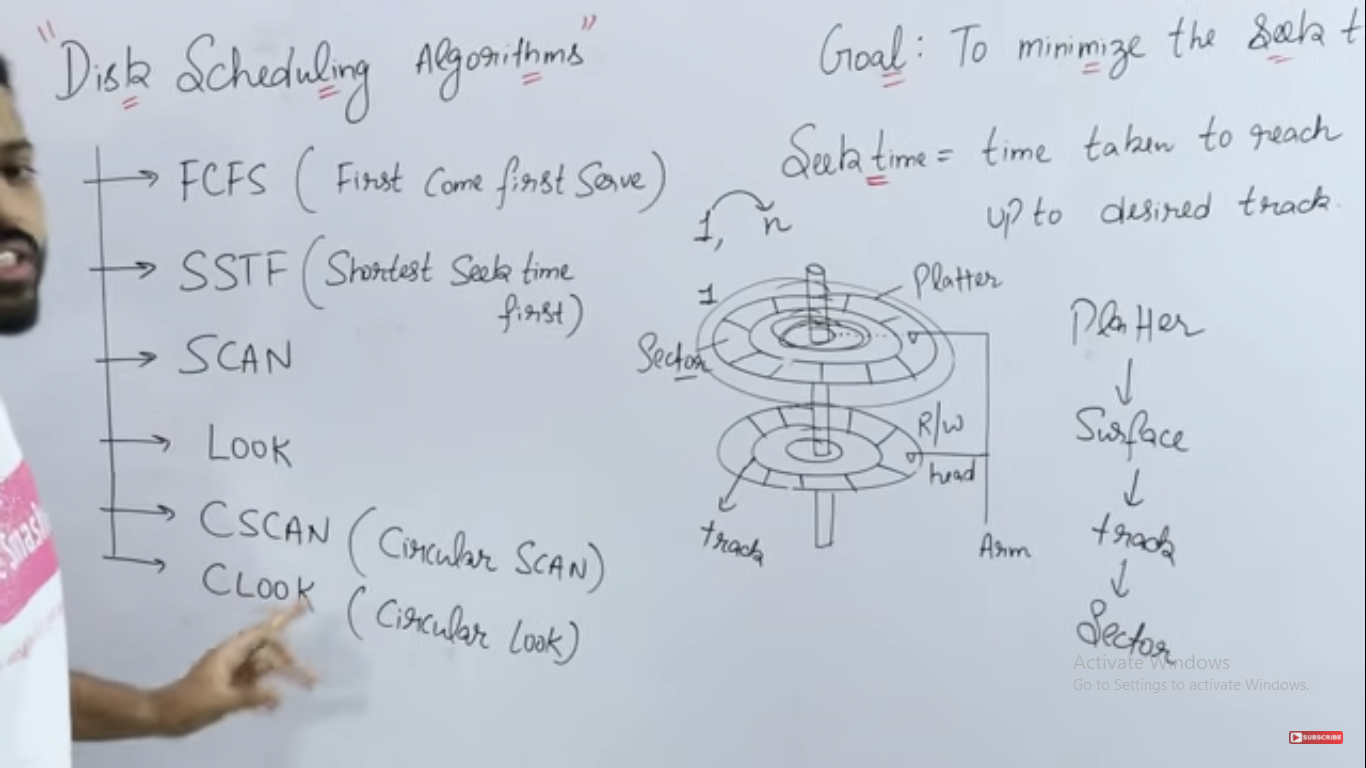 "Disk Scheduling Algorithms"
FCFS (First Come first Serve)
SSTF (Shortest Seek time
first)
SCAN
LOOK
CSCAN (Circular SCAN)
CLOOK (Circular Look)
Goal: To minimize the Seek t
Seek time = time taken to reach
up to desired track.
1, n
1
Platter
Sector
R/W
head
track
Arm
Platter
Surface
track
Sector
Activate Windows
Go to Settings to activate Windows.
SUBSCRIBE